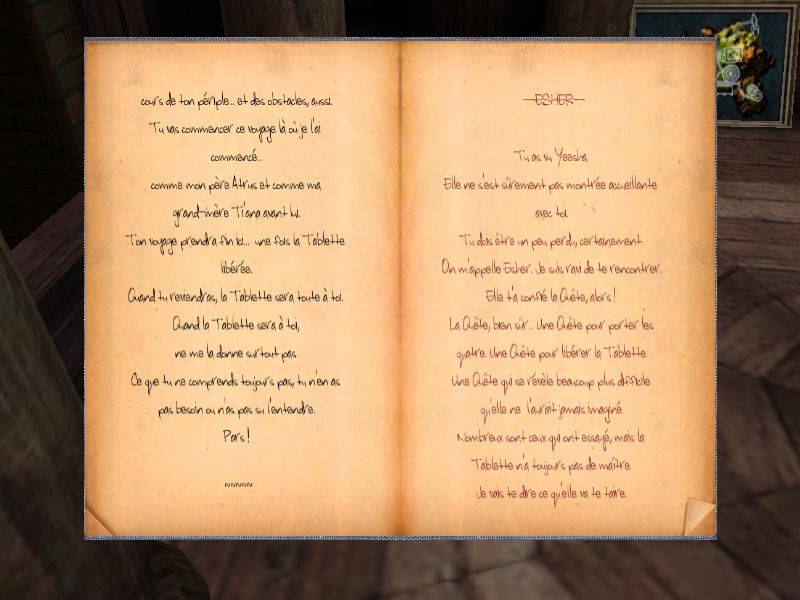 cours de ton périple... et des obstacles, aussi.
Tu vas commencer ce voyage là où je l'ai
commencé...
comme mon père Atrus et comme ma
grand-mère Ti'ana avant lui.
Ton voyage prendra fin ici... une fois la Tablette
libérée.
Quand tu reviendras, la Tablette sera toute à toi.
Quand la Tablette sera à toi,
ne me la donne surtout pas.
Ce que tu ne comprends toujours pas, tu n'en as
pas besoin ou n'as pas su l'entendre.
Pars !
~~~~~
—ESHER—
Tu as vu Yeesha,
Elle ne s'est sûrement pas montrée accueillante
avec toi.
Tu dois être un peu perdu, certainement.
On m'appelle Esher. Je suis ravi de te rencontrer.
Elle t'a confié la Quête, alors !
La Quête, bien sûr... Une Quête pour porter les
quatre. Une Quête pour libérer la Tablette.
Une Quête qui se révèle beaucoup plus difficile
qu'elle ne l'aurait jamais imaginé.
Nombreux sont ceux qui ont essayé, mais la
Tablette n'a toujours pas de maître.
Je vais te dire ce qu'elle va te taire.